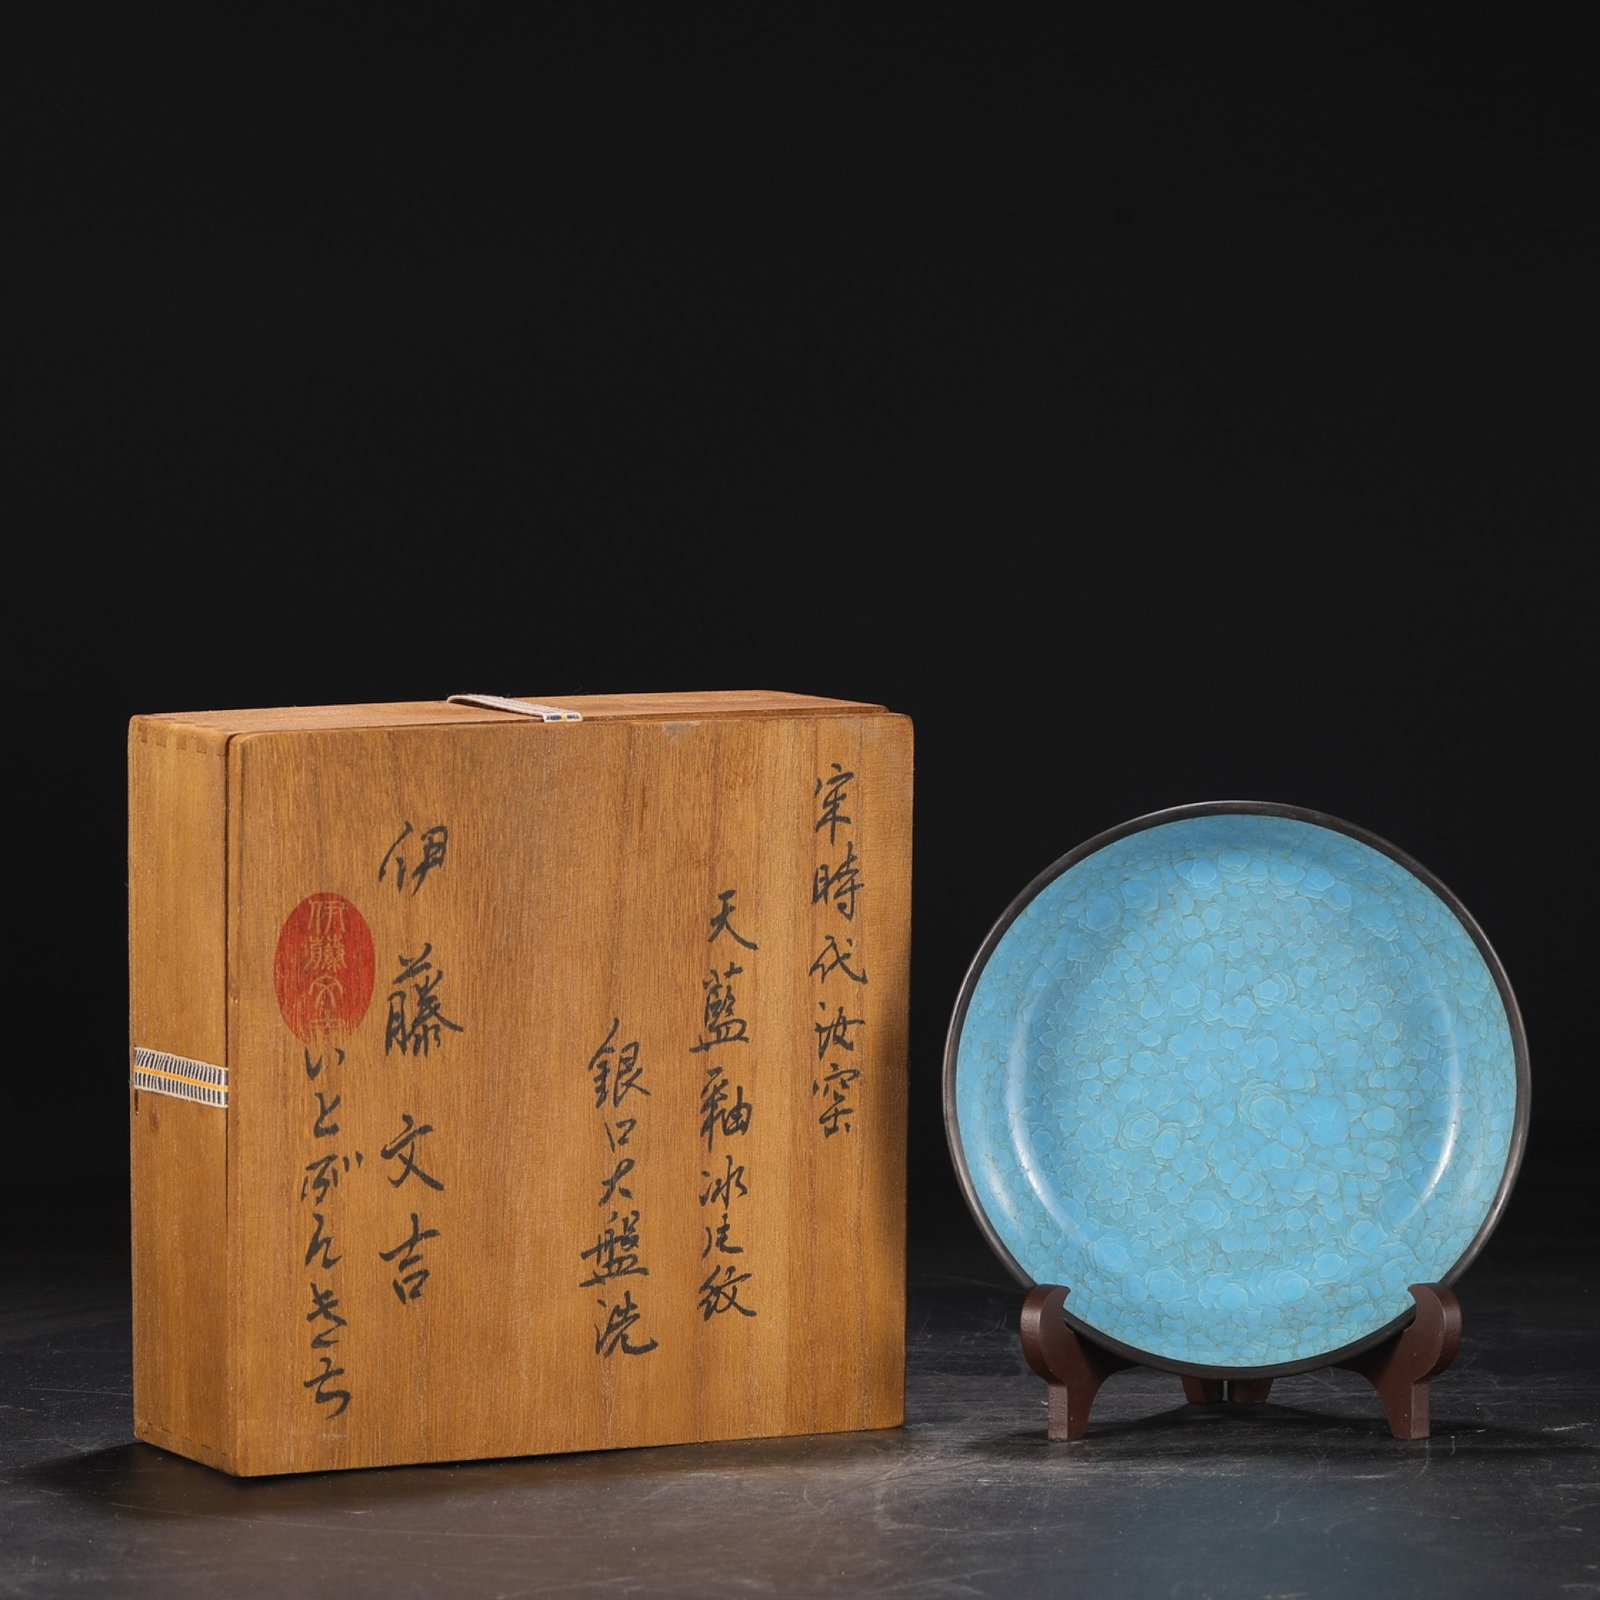 宋時代汝窑
天藍釉冰片紋
銀口大盤洗
伊藤文吉
いとうぶんきち
伊藤文吉